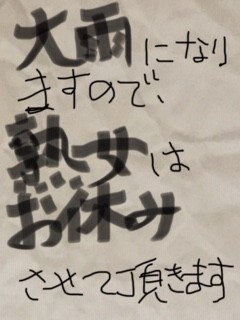 大雨になり
ますので、
熟女は
お休み
させて頂きます